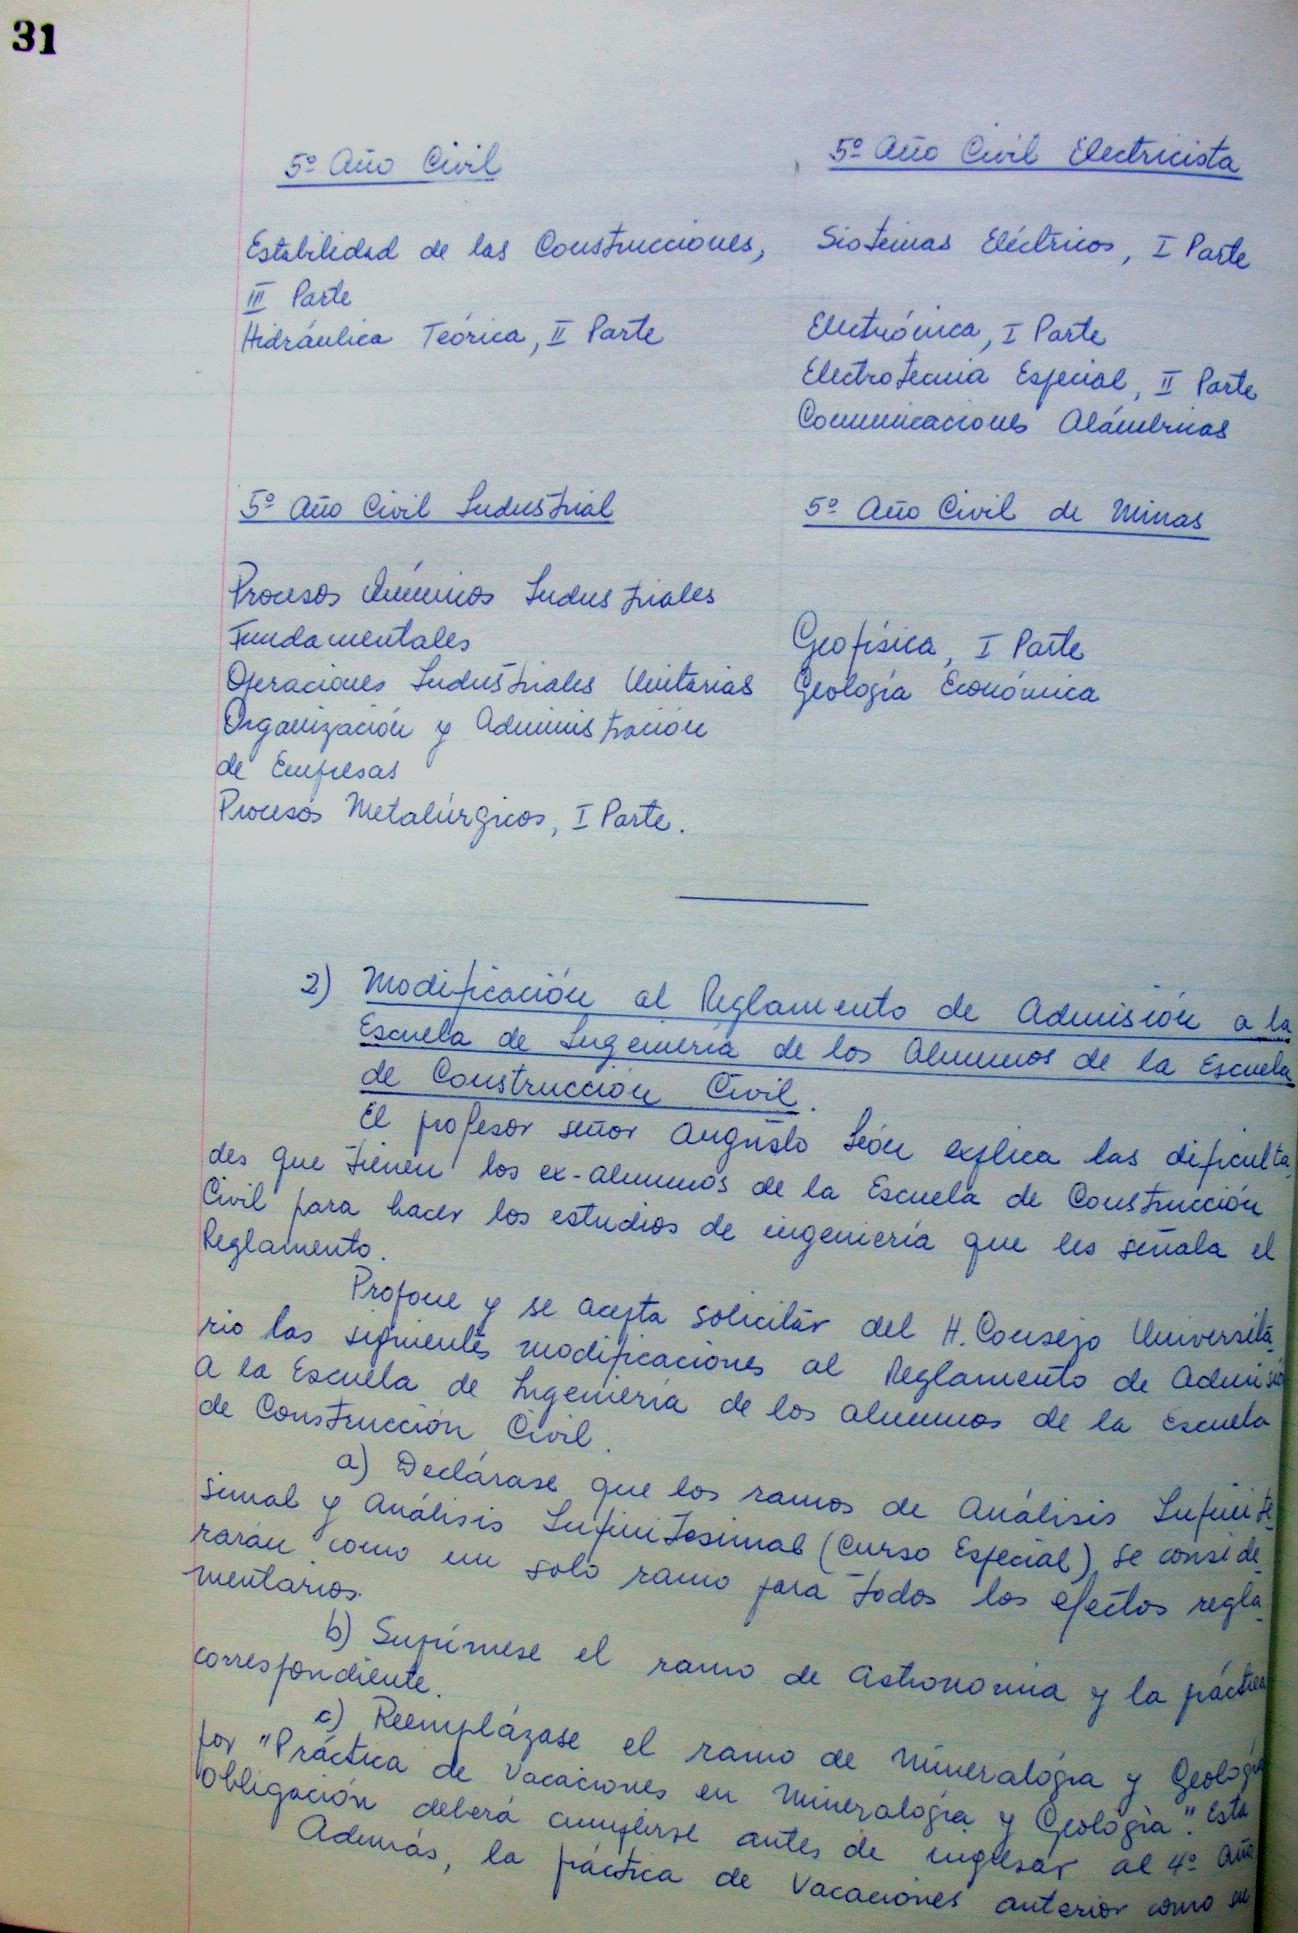 31
5º Año Civil
Estabilidad de las Construcciones,
III Parte
Hidráulica Teórica, II Parte
5º Año Civil Electricista
Sistemas Eléctricos, I Parte
Electrónica, I Parte
Electrotecnia Especial, II Parte
Comunicaciones Alámbricas
5º Año Civil Industrial
Procesos Químicos Industriales
Fundamentales
Operaciones Industriales Unitarias
Organización y Administración
de Empresas
Procesos Metalúrgicos, I Parte.
5º Año Civil de Minas
Geofísica, I Parte
Geología Económica
2) Modificación al Reglamento de Admisión a la
Escuela de Ingeniería de los Alumnos de la Escuela
de Construcción Civil.
El profesor señor Augusto León explica las dificulta-
des que tienen los ex-alumnos de la Escuela de Construcción
Civil para hacer los estudios de ingeniería que les señala el
Reglamento.
Propone y se acepta solicitar del H. Consejo Universita-
rio las siguientes modificaciones al Reglamento de Admisió
a la Escuela de Ingeniería de los alumnos de la Escuela
de Construcción Civil.
a) Declárase que los ramos de Análisis Infinite-
simal y Análisis Infinitesimal (Curso Especial) se conside-
rarán como un solo ramo para todos los efectos regla-
mentarios.
b) Suprímese el ramo de Astronomía y la práctica
correspondiente.
c) Reemplázase el ramo de Mineralogía y Geología
por "Práctica de Vacaciones en Mineralogía y Geología". Esta
obligación deberá cumplirse antes de ingresar al 4º Año
Además, la práctica de Vacaciones anterior como su